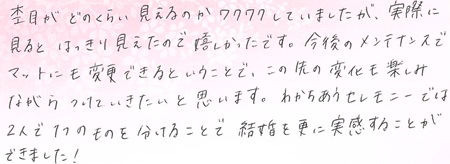 杢目がどのくらい見えるのかワクワクしていましたが、実際に
見るとはっきり見えたので嬉しかったです。今後のメンテナンスで
マットにも変更できるということで、この先の変化も楽しみ
ながらつけていきたいと思います。わかちあうセレモニーでは
2人で1つのものを分けることで結婚を更に実感することが
できました!